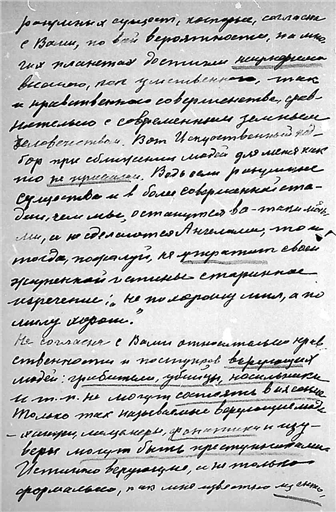 разумных существ, конечно, согласен
с Вами, по всей вероятности, на мно-
гих планетах достигли неимоверно
высокого, как умственного, так
и нравственного совершенства, срав-
нительно с современным земным
человечеством. Вот Искусственный под-
бор при сближении людей для меня как
то не приемлем. Ведь если разумные
существа и в более совершенной ста-
дии, чем мы, останутся всё-таки людь-
ми, а не сделаются Ангелами, то и
тогда, пожалуй, не утратит своей
жизненной истины старинное
изречение: "не по хорошу мил, а по
милу хорош."
Не согласен с Вами относительно нрав-
ственности и поступков верующих
людей: грабители, убийцы, насильники
и т. п. не могут
Только так называемые верующие люди
- ханжи, лицемеры, фанатики и изу-
веры могут быть преступниками.
Истинно верующие, а не только
формально, как мне известно